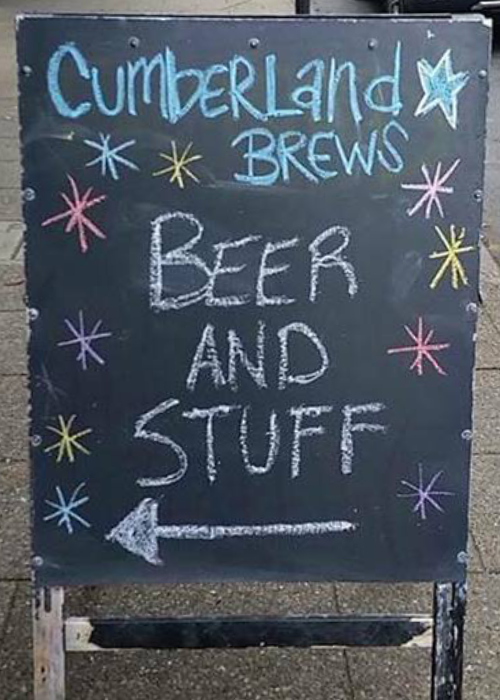 CUMBERLand
BREWS
BEER
AND
STUFF